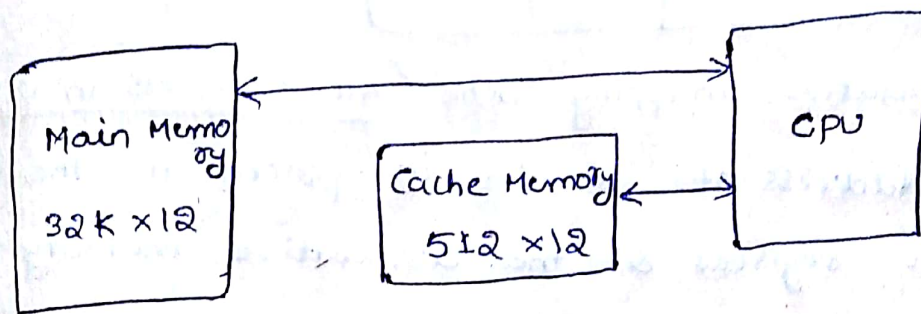 Main Memo
ry
32K ×12
Cache Memory
512 ×12
CPU